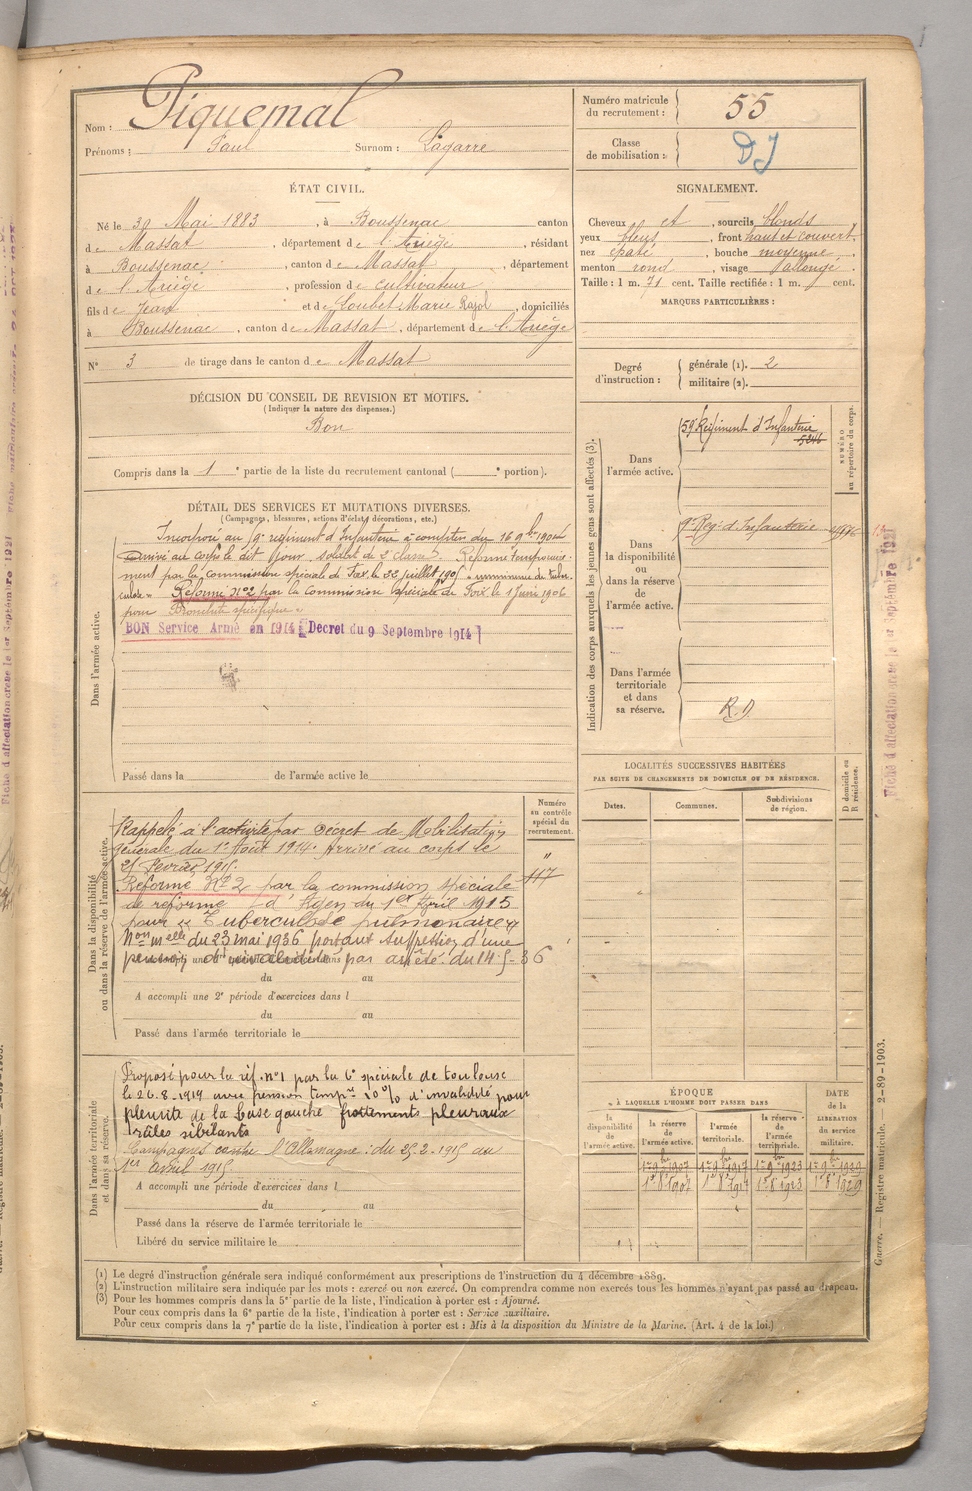 Nom : Piquemal
Prénoms : Paul Surnom : Lagarre
Numéro matricule du recrutement : 55
Classe de mobilisation : DJ
ÉTAT CIVIL.
Né le 30 Mai 1883, à Boussenac canton
de Massat, département de l'Ariège, résidant
à Boussenac, canton de Massat, département
de l'Ariège, profession de cultivateur
fils de Jean et de Loubet Marie Rajol, domiciliés
à Boussenac, canton de Massat, département de l'Ariège
N° 3 de tirage dans le canton de Massat
SIGNALEMENT.
Cheveux et, sourcils blonds
yeux bleus, front haut et couvert,
nez épaté, bouche moyenne,
menton rond, visage allongé
Taille : 1 m. 71 cent. Taille rectifiée : 1 m. cent.
MARQUES PARTICULIÈRES :
Degré d'instruction : générale (1). 2
militaire (2).
DÉCISION DU CONSEIL DE REVISION ET MOTIFS.
(Indiquer la nature des dispenses.)
Bon
Compris dans la 1e partie de la liste du recrutement cantonal ( e portion).
DÉTAIL DES SERVICES ET MUTATIONS DIVERSES.
(Campagnes, blessures, actions d'éclat, décorations, etc.)
Dans l'armée active.
Incorporé au régiment d'Infanterie à compter du 16 9bre 1904
Arrivé au corps le dit jour, soldat de 2e classe. Réformé temporaire-
ment par la commission spéciale de Foix le juillet 1905
Réformé N°2 par la Commission spéciale de Foix le 1 Juin 1906
pour Bronchite spécifique
BON Service Armé en 1914 [Decret du 9 Septembre 1914]
Passé dans la de l'armée active le
Indication des corps auxquels les jeunes gens sont affectés (3).
Dans l'armée active.
59e Régiment d'Infanterie
5246
NUMÉRO au répertoire du corps.
Dans la disponibilité ou dans la réserve de l'armée active.
9e Reg. d'Infanterie
Dans l'armée territoriale et dans sa réserve.
R.D
LOCALITÉS SUCCESSIVES HABITÉES
PAR SUITE DE CHANGEMENTS DE DOMICILE OU DE RÉSIDENCE.
Dates. Communes. Subdivisions de région. D domicile ou R résidence.
Dans la disponibilité ou dans la réserve de l'armée active.
Numéro au contrôle spécial du recrutement.
"
117
Rappelé à l'activité par Decret de Mobilisation
générale du 1er Août 1914. Arrivé au corps le
25 Fevrier 1915.
Réformé N°2 par la commission spéciale
de reforme d'Agen du 1er Avril 1915
pour « Tuberculose pulmonaire »
Non melle du 23 mai 1936 portant suppression d'une
pension d'invalidité par arrêté du 14-5-36
du au
A accompli une 2e période d'exercices dans l
du au
Passé dans l'armée territoriale le
Dans l'armée territoriale et dans sa réserve.
Proposé pour la réf. n°1 par la C° spéciale de toulouse
le 26-8-1919 avec pension temp. 10 % d'invalidité pour
pleurite de la base gauche frottements pleuraux
râles sibilants
Campagnes contre l'Allemagne : du 25-2-1915 au
1er avril 1915
A accompli une période d'exercices dans l
du au
Passé dans la réserve de l'armée territoriale le
Libéré du service militaire le
ÉPOQUE
À LAQUELLE L'HOMME DOIT PASSER DANS
la disponibilité de l'armée active. la réserve de l'armée active. l'armée territoriale. la réserve de l'armée territoriale.
DATE de la LIBÉRATION du service militaire.
1er 9bre 1907 1er 9bre 1917 1er 9bre 1923 1er 9bre 1929
1er 8bre 1907 1er 8bre 1917 1er 8bre 1923 1er 8bre 1929
(1) Le degré d'instruction générale sera indiqué conformément aux prescriptions de l'instruction du 4 décembre 1889.
(2) L'instruction militaire sera indiquée par les mots : exercé ou non exercé. On comprendra comme non exercés tous les hommes n'ayant pas passé au drapeau.
(3) Pour les hommes compris dans la 5e partie de la liste, l'indication à porter est : Ajourné.
Pour ceux compris dans la 6e partie de la liste, l'indication à porter est : Service auxiliaire.
Pour ceux compris dans la 7e partie de la liste, l'indication à porter est : Mis à la disposition du Ministre de la Marine. (Art. 4 de la loi.)
Guerre. — Registre matricule. — 2-89-1903.
Fiche d'affectation creee le 1er Septembre 1921